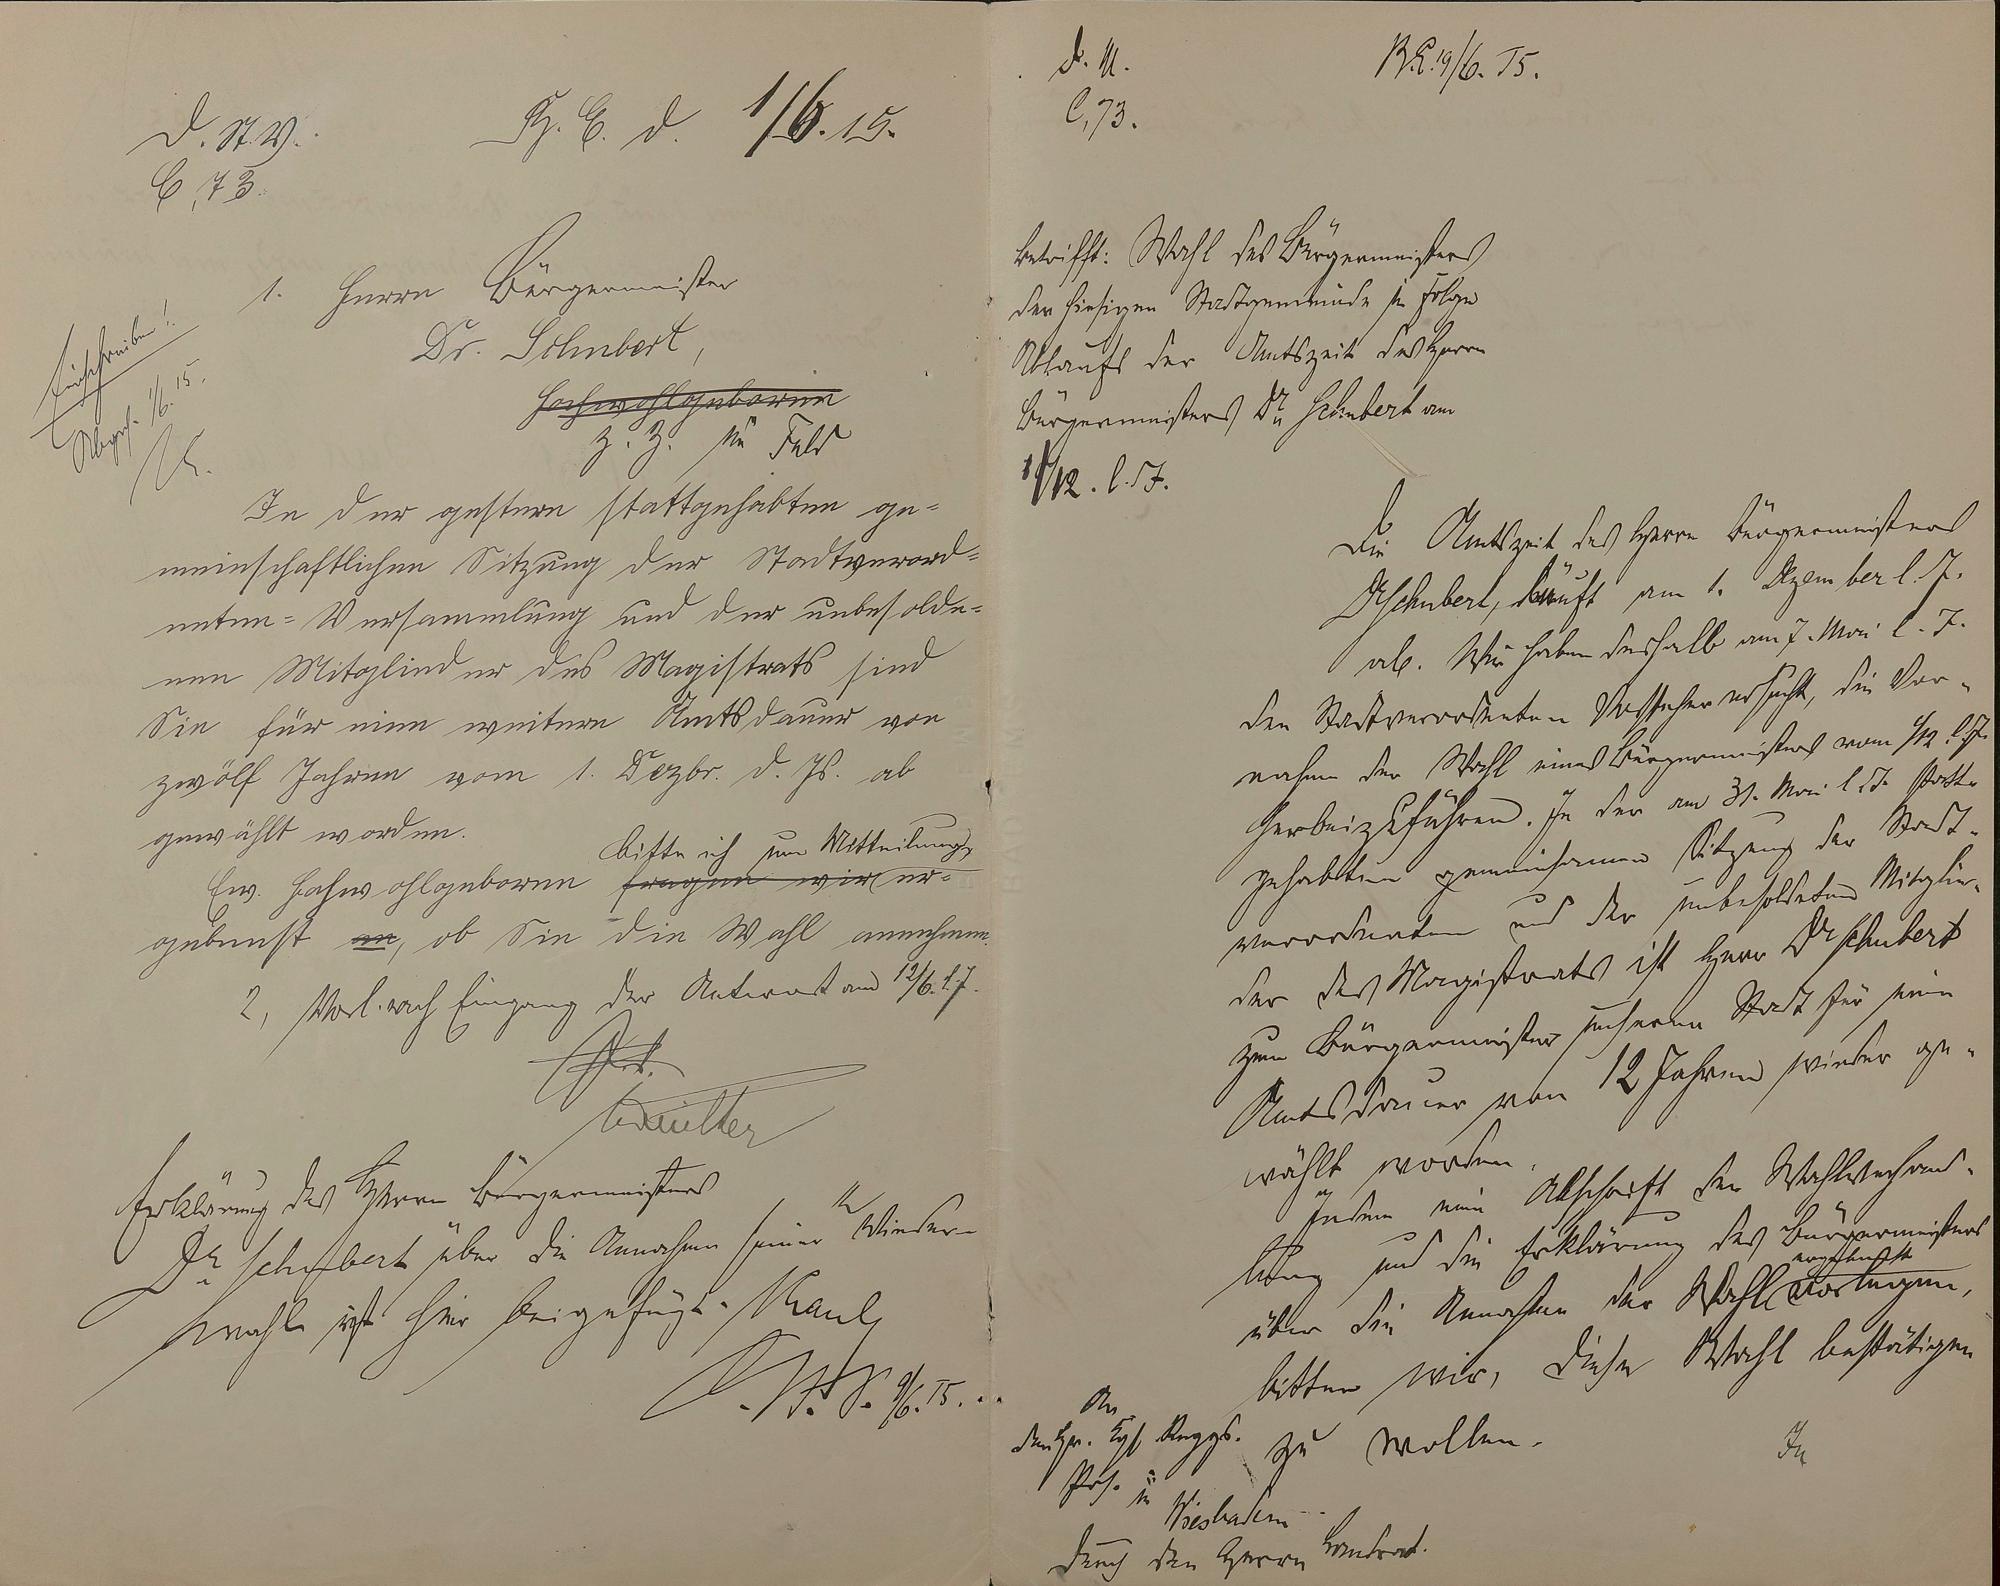 D. St. V.
C, 73.
K. E. d. 1/6. 15.
1. Herrn Bürgermeister
Dr. Schubert,
Hochwohlgeboren
z. Z. im Feld
Einschreiben!
Abges. 1/6. 15.
In der gestern stattgehabten ge=
meinschaftlichen Sitzung der Stadtverord=
neten=Versammlung und der unbesolde=
nen Mitglieder des Magistrats sind
Sie für eine weitere Amtsdauer von
zwölf Jahren vom 1. Dezbr. d. Js. ab
gewählt worden.
bitte ich um Mitteilung,
Ew. Hochwohlgeboren fragen wir er=
gebenst an, ob Sie die Wahl annehmen.
2, Vorl. nach Eingang der Antwort am 12/6. l. J.
Erklärung des Herrn Bürgermeisters
Dr Schubert über die Annahme seiner Wieder=
wahl ist hier beigefügt.
9/6. 15.
D. M.
C, 73.
K. E. 19/6. 15.
Betrifft: Wahl des Bürgermeisters
der hiesigen Stadtgemeinde in Folge
Ablaufs der Amtszeit des Herrn
Bürgermeisters Dr Schubert am
1/12. l. J.
Die Amtszeit des Herrn Bürgermeisters
Dr Schubert, läuft am 1. Dezember l. J.
ab. Wir haben deshalb am 7. Mai l. J.
den Stadtverordneten Vorsteher ersucht, die Vor=
nahme der Wahl eines Bürgermeisters vom 1/12 l. J.
herbeizuführen. In der am 31. Mai l. J. statt=
gehabten gemeinsamen Sitzung der Stadt=
verordneten und der unbesoldeten Mitglie=
der des Magistrats ist Herr Dr Schubert
zum Bürgermeister unserer Stadt für eine
Amtsdauer von 12 Jahren wieder ge=
wählt worden.
Indem eine Abschrift der Wahlverhand=
lung und die Erklärung des Bürgermeisters
ergebenst
über die Annahme der Wahl vorlegen,
bitten wir, diese Wahl bestätigen
zu wollen.
An
den Hr. Kgl. Reggs.
Präs. in
Wiesbaden
durch den Herrn Landrat.
In